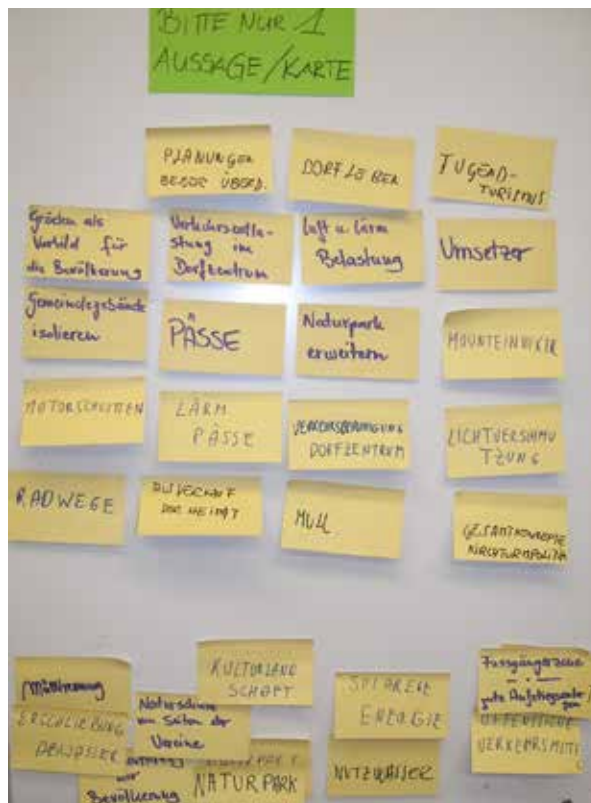 BITTE NUR 1
AUSSAGE/KARTE
PLANUNGEN
DORFLEBEN
TUGEND-
TURISMUS
Gröden als
Vorbild für
die Bevölkerung
Verkehrsbela-
stung im
Dorfzentrum
Luft u. Lärm
Belastung
Umsetzer
Gemeindegebäude
isolieren
PÄSSE
Naturpark
erweitern
MOUNTEINBIKER
MOTORSCHLITTEN
LÄRM
PÄSSE
VERKEHRSBERUHIGUNG
DORFZENTRUM
LICHTVERSHMU
TZUNG
RADWEGE
AUSVERKAUF
DER HEIMAT
MÜLL
GESAMTKONZEPTE
KIRCHTURMPOLITIK
Mülltrennung
ERSCHLIEßUNG
ABWASSER
Naturschutz
von Seiten der
Vereine
Bevölkerung
KULTURLAND
SCHAFT
NATURPARK
SOLARE
ENERGIE
NUTZWASSER
Fussgängerzone
gute
ÖFFENTLICHE
VERKEHRSMITTEL